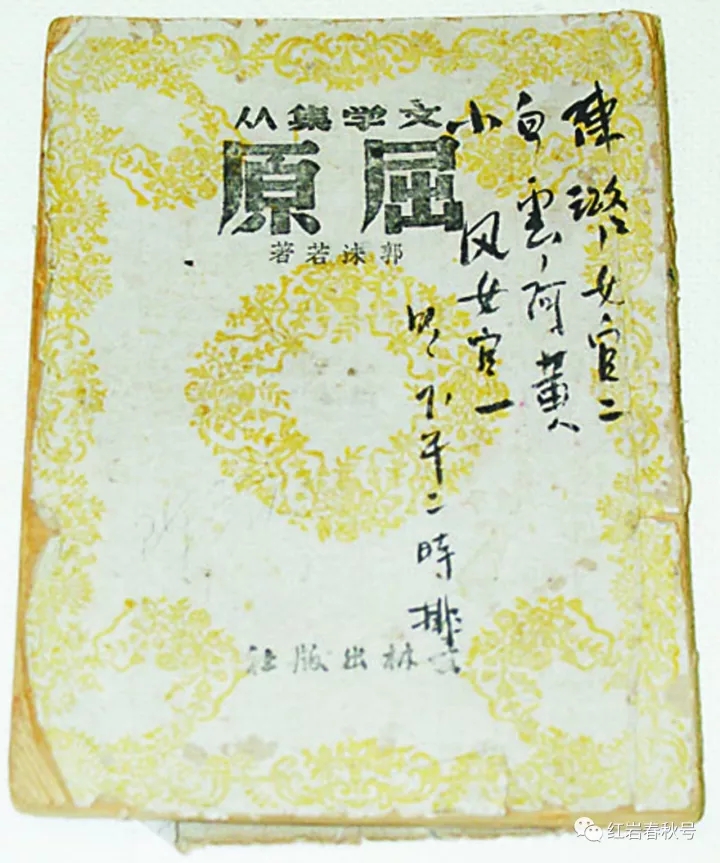 文学集从
屈原
郭沫若著
陳璐女官二
白雲阿黄
小风女官一
明下午二時排
文林出版社
红岩春秋号